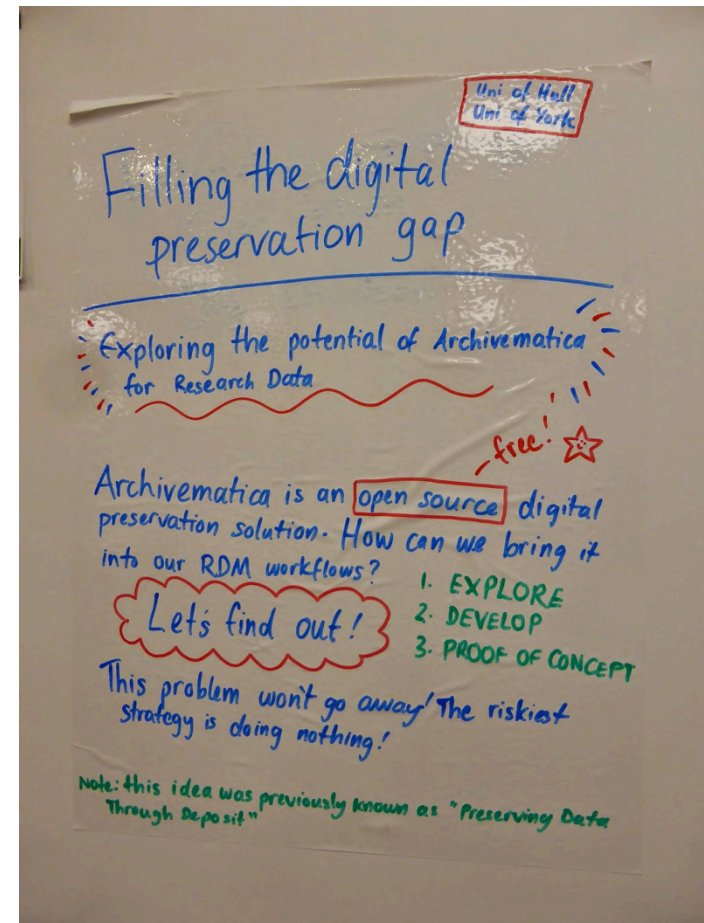 Uni of Hull
Uni of York
Filling the digital
preservation gap
Exploring the potential of Archivematica
for Research Data
free!
Archivematica is an open source digital
preservation solution. How can we bring it
into our RDM workflows?
1. EXPLORE
2. DEVELOP
3. PROOF OF CONCEPT
Let's find out!
This problem won't go away! The riskiest
strategy is doing nothing!
Note: this idea was previously known as "Preserving Data
Through Deposit"